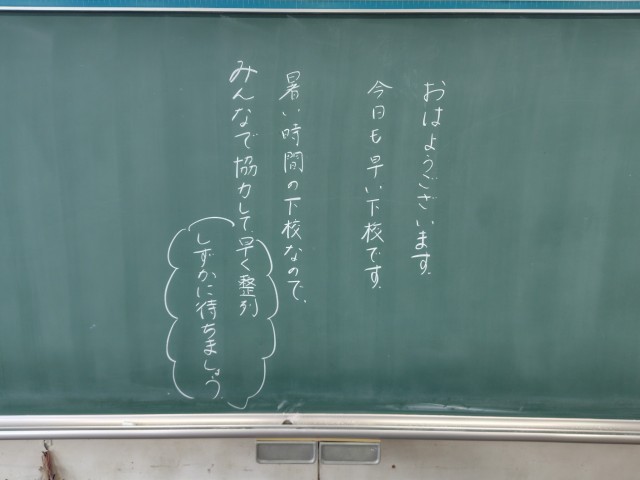 おはようございます。
今日も早い下校です。
暑い時間の下校なので、
みんなで協力して、早く整列
しずかに待ちましょう。